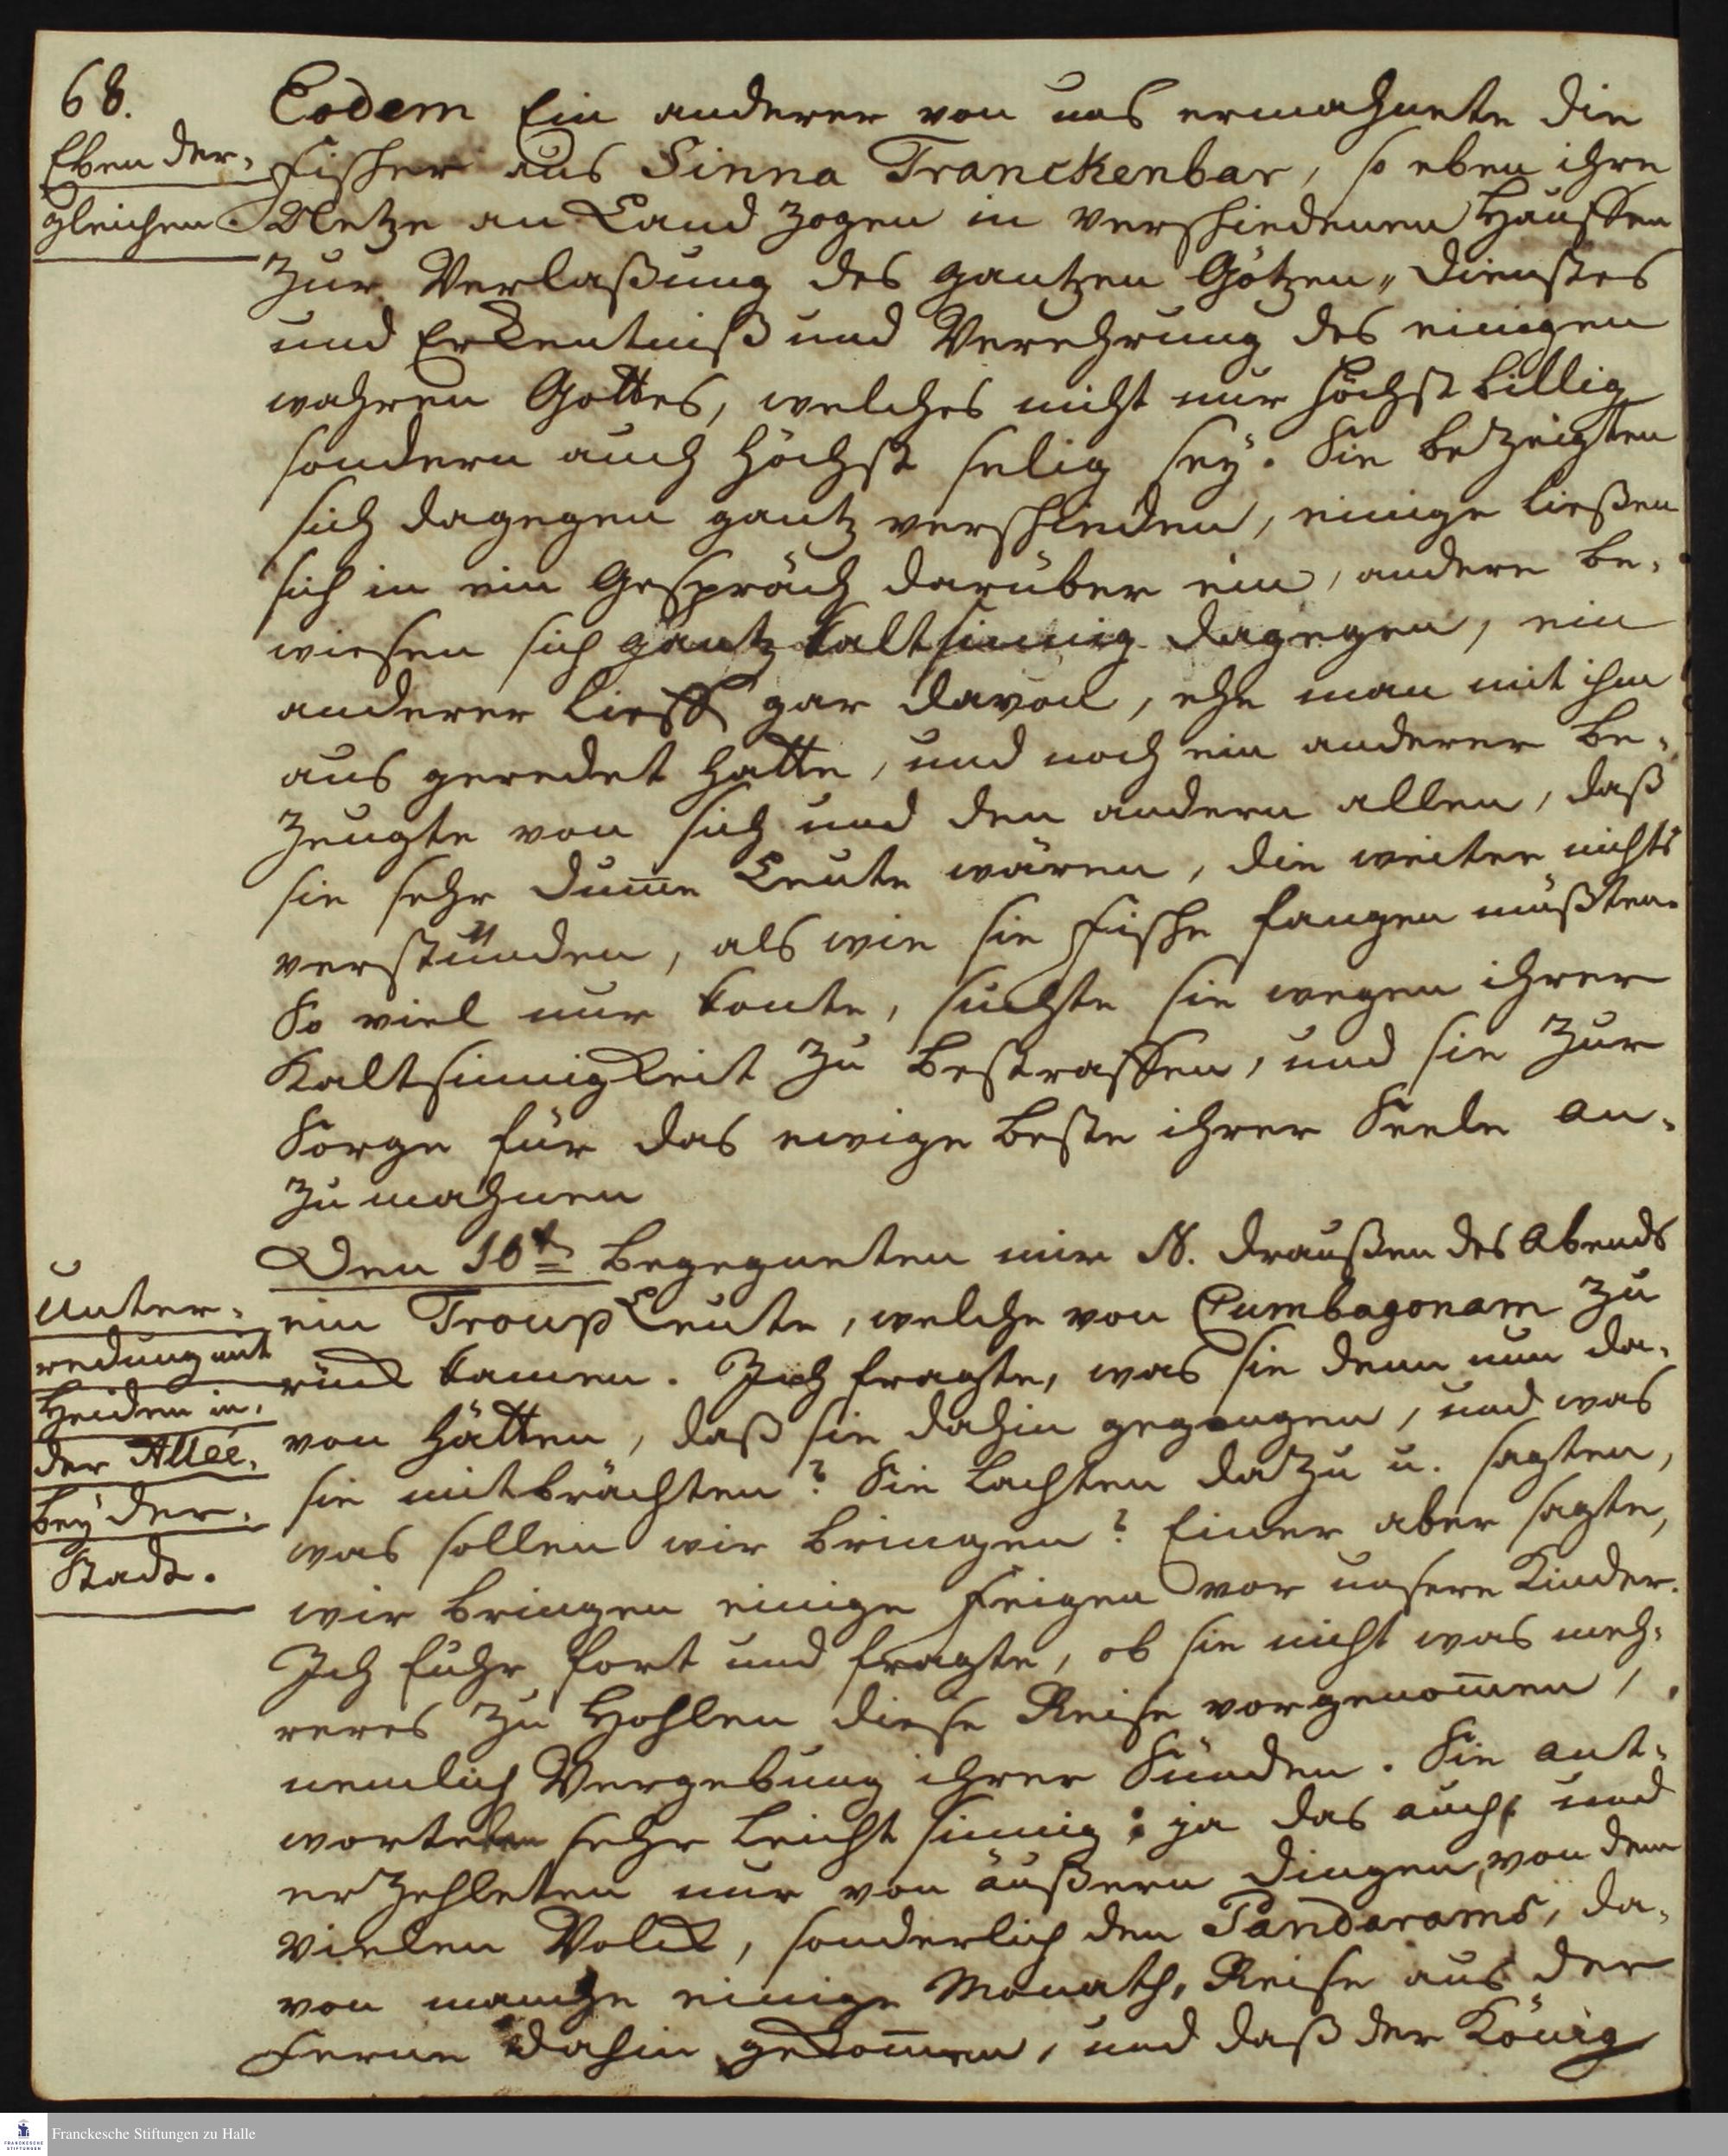 68.
Eben der„
gleichen.
Eodem Ein anderer von uns ermahnete die
Fischer aus Sinna Tranckenbar, so eben ihre
Netze an Land zogen in verschiedenen Hauffen
zur Verlaßung des gantzen Götzen„dienstes
und Erkentniß und Verehrung des einigen
wahren Gottes, welches nicht nur höchst billig
sondern auch höchst selig sey. Sie bezeigten
sich dagegen gantz verschieden, einige ließen
sich in ein Gespräch darüber ein, andere be„
wiesen sich gantz kaltsinnig dagegen, ein
anderer lieff gar davon, ehe man mit ihm
aus geredet hatte, und noch ein anderer be„
zeugte von sich und den andern allen, daß
sie sehr dum̅e Leute wären, die weiter nichts
verstünden, als wie sie Fische fangen müßten.
So viel nur konte, suchte sie wegen ihrer
Kaltsinnigkeit zu bestraffen, und sie zur
Sorge für das ewige beste ihrer Seele an„
zu mahnen
Den 10t begegneten mir N. draußen des Abends
ein Troup Leute, welche von Cumbagonam zu
rück kamen. Ich fragte, was sie denn nun da„
von hätten, daß sie dahin gegangen, und was
sie mitbrächten? Sie lachten dazu u. sagten,
was sollen wir bringen? Einer aber sagte,
wir bringen einige Feigen vor unsere Kinder.
Ich fuhr fort und fragte, ob sie nicht was meh„
reres zu hohlen diese Reise vorgenom̅en,
nemlich Vergebung ihrer Sünden. Sie ant„
worteten sehr leicht sinnig: ja das auch: und
erzehleten nur von äußern Dingen, von dem
vielen Volck, sonderlich den Pandarams, da„
von manche einige Monath, Reise aus der
Ferne dahin gekom̅en, und daß der König
Unter„
redung mit
Heiden in„
der Alleé,
bey der„
Stadt.
Franckesche Stiftungen zu Halle
FRANCKESCHE
STIFTUNGEN